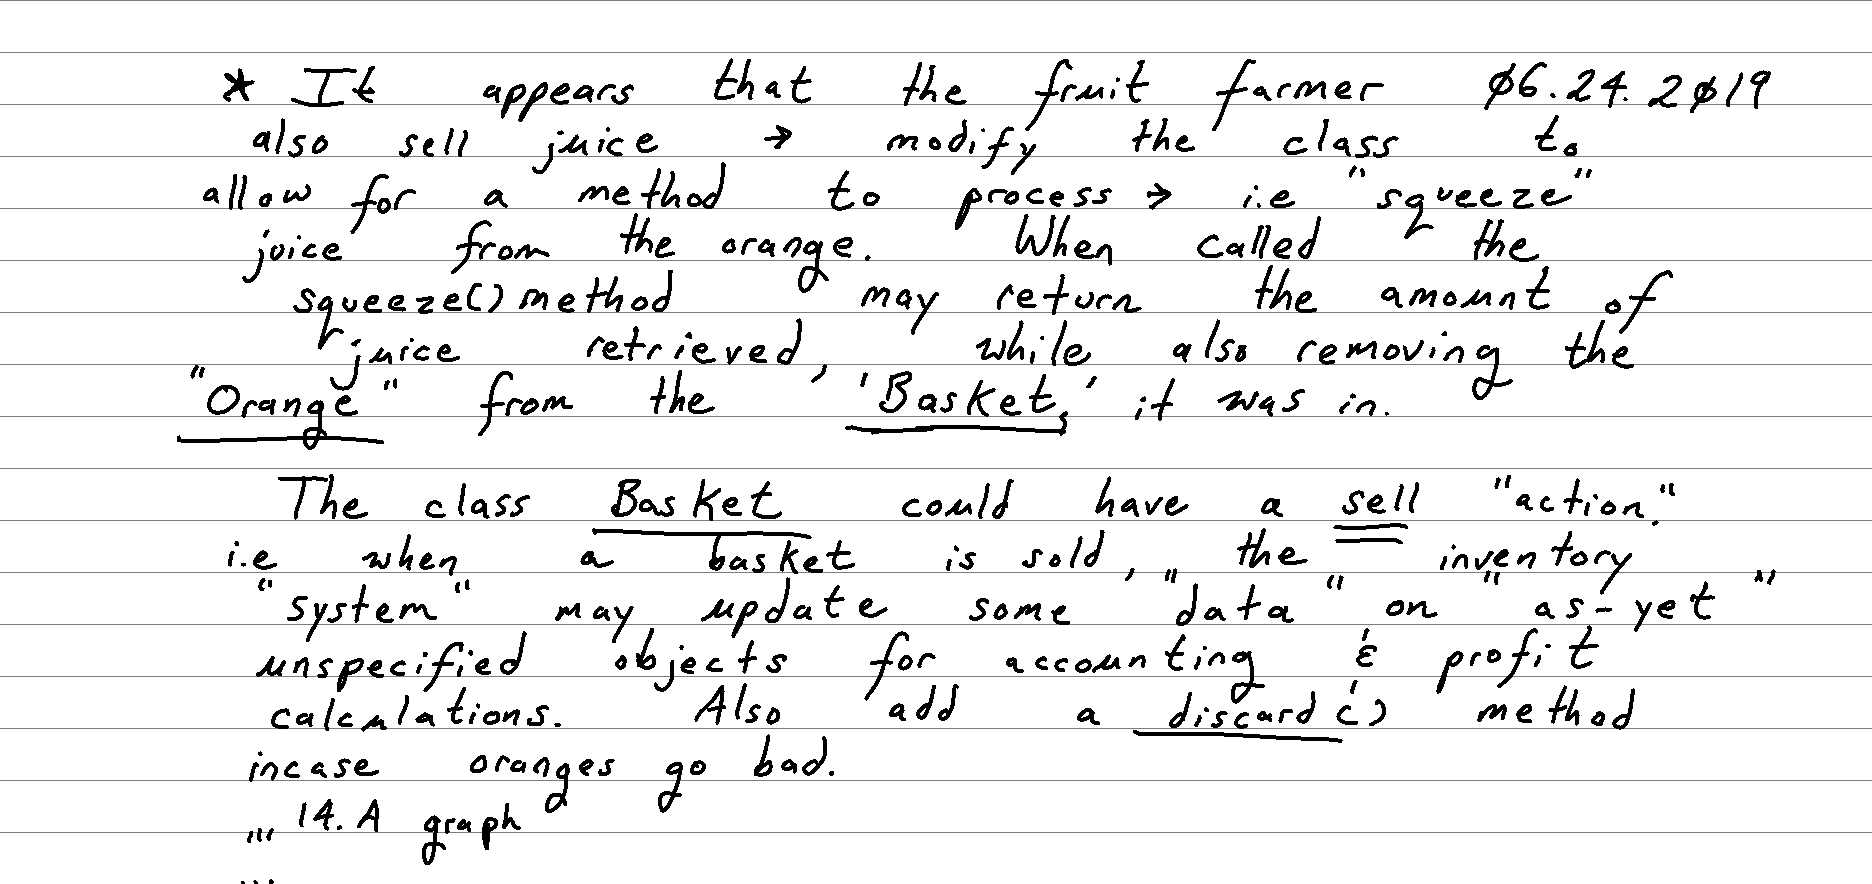 * It appears that the fruit farmer 06.24.2019
also sell juice → modify the class to
allow for a method to process → i.e "squeeze"
juice from the orange. When called the
squeeze() method may return the amount of
juice retrieved, while also removing the
"Orange" from the 'Basket,' it was in.
The class Basket could have a sell "action."
i.e when a basket is sold, the inventory
"system" may update some "data" on "as-yet"
unspecified objects for accounting & profit
calculations. Also add a discard() method
incase oranges go bad.
,,, 14. A graph
...